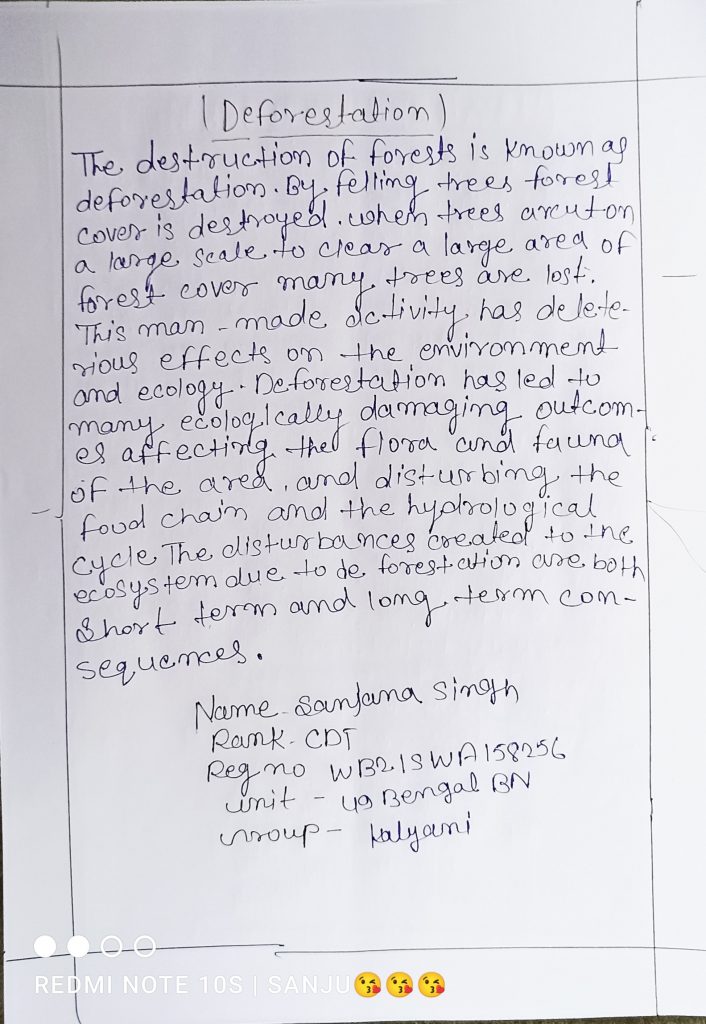 (Deforestation)
The destruction of forests is known as
deforestation. By felling trees forest
cover is destroyed. when trees are cut on
a large scale to clear a large area of
forest cover many trees are lost.
This man-made activity has delete-
rious effects on the environment
and ecology. Deforestation has led to
many ecologically damaging outcom-
es affecting the flora and fauna
of the area, and disturbing the
food chain and the hydrological
cycle. The disturbances created to the
ecosystem due to de forestation are both
short term and long term con-
sequences.
Name - Sanjana Singh
Rank - CDT
Reg no WB21SWA158256
unit - 49 Bengal BN
Group - Kalyani
REDMI NOTE 10S | SANJU😘😘😘